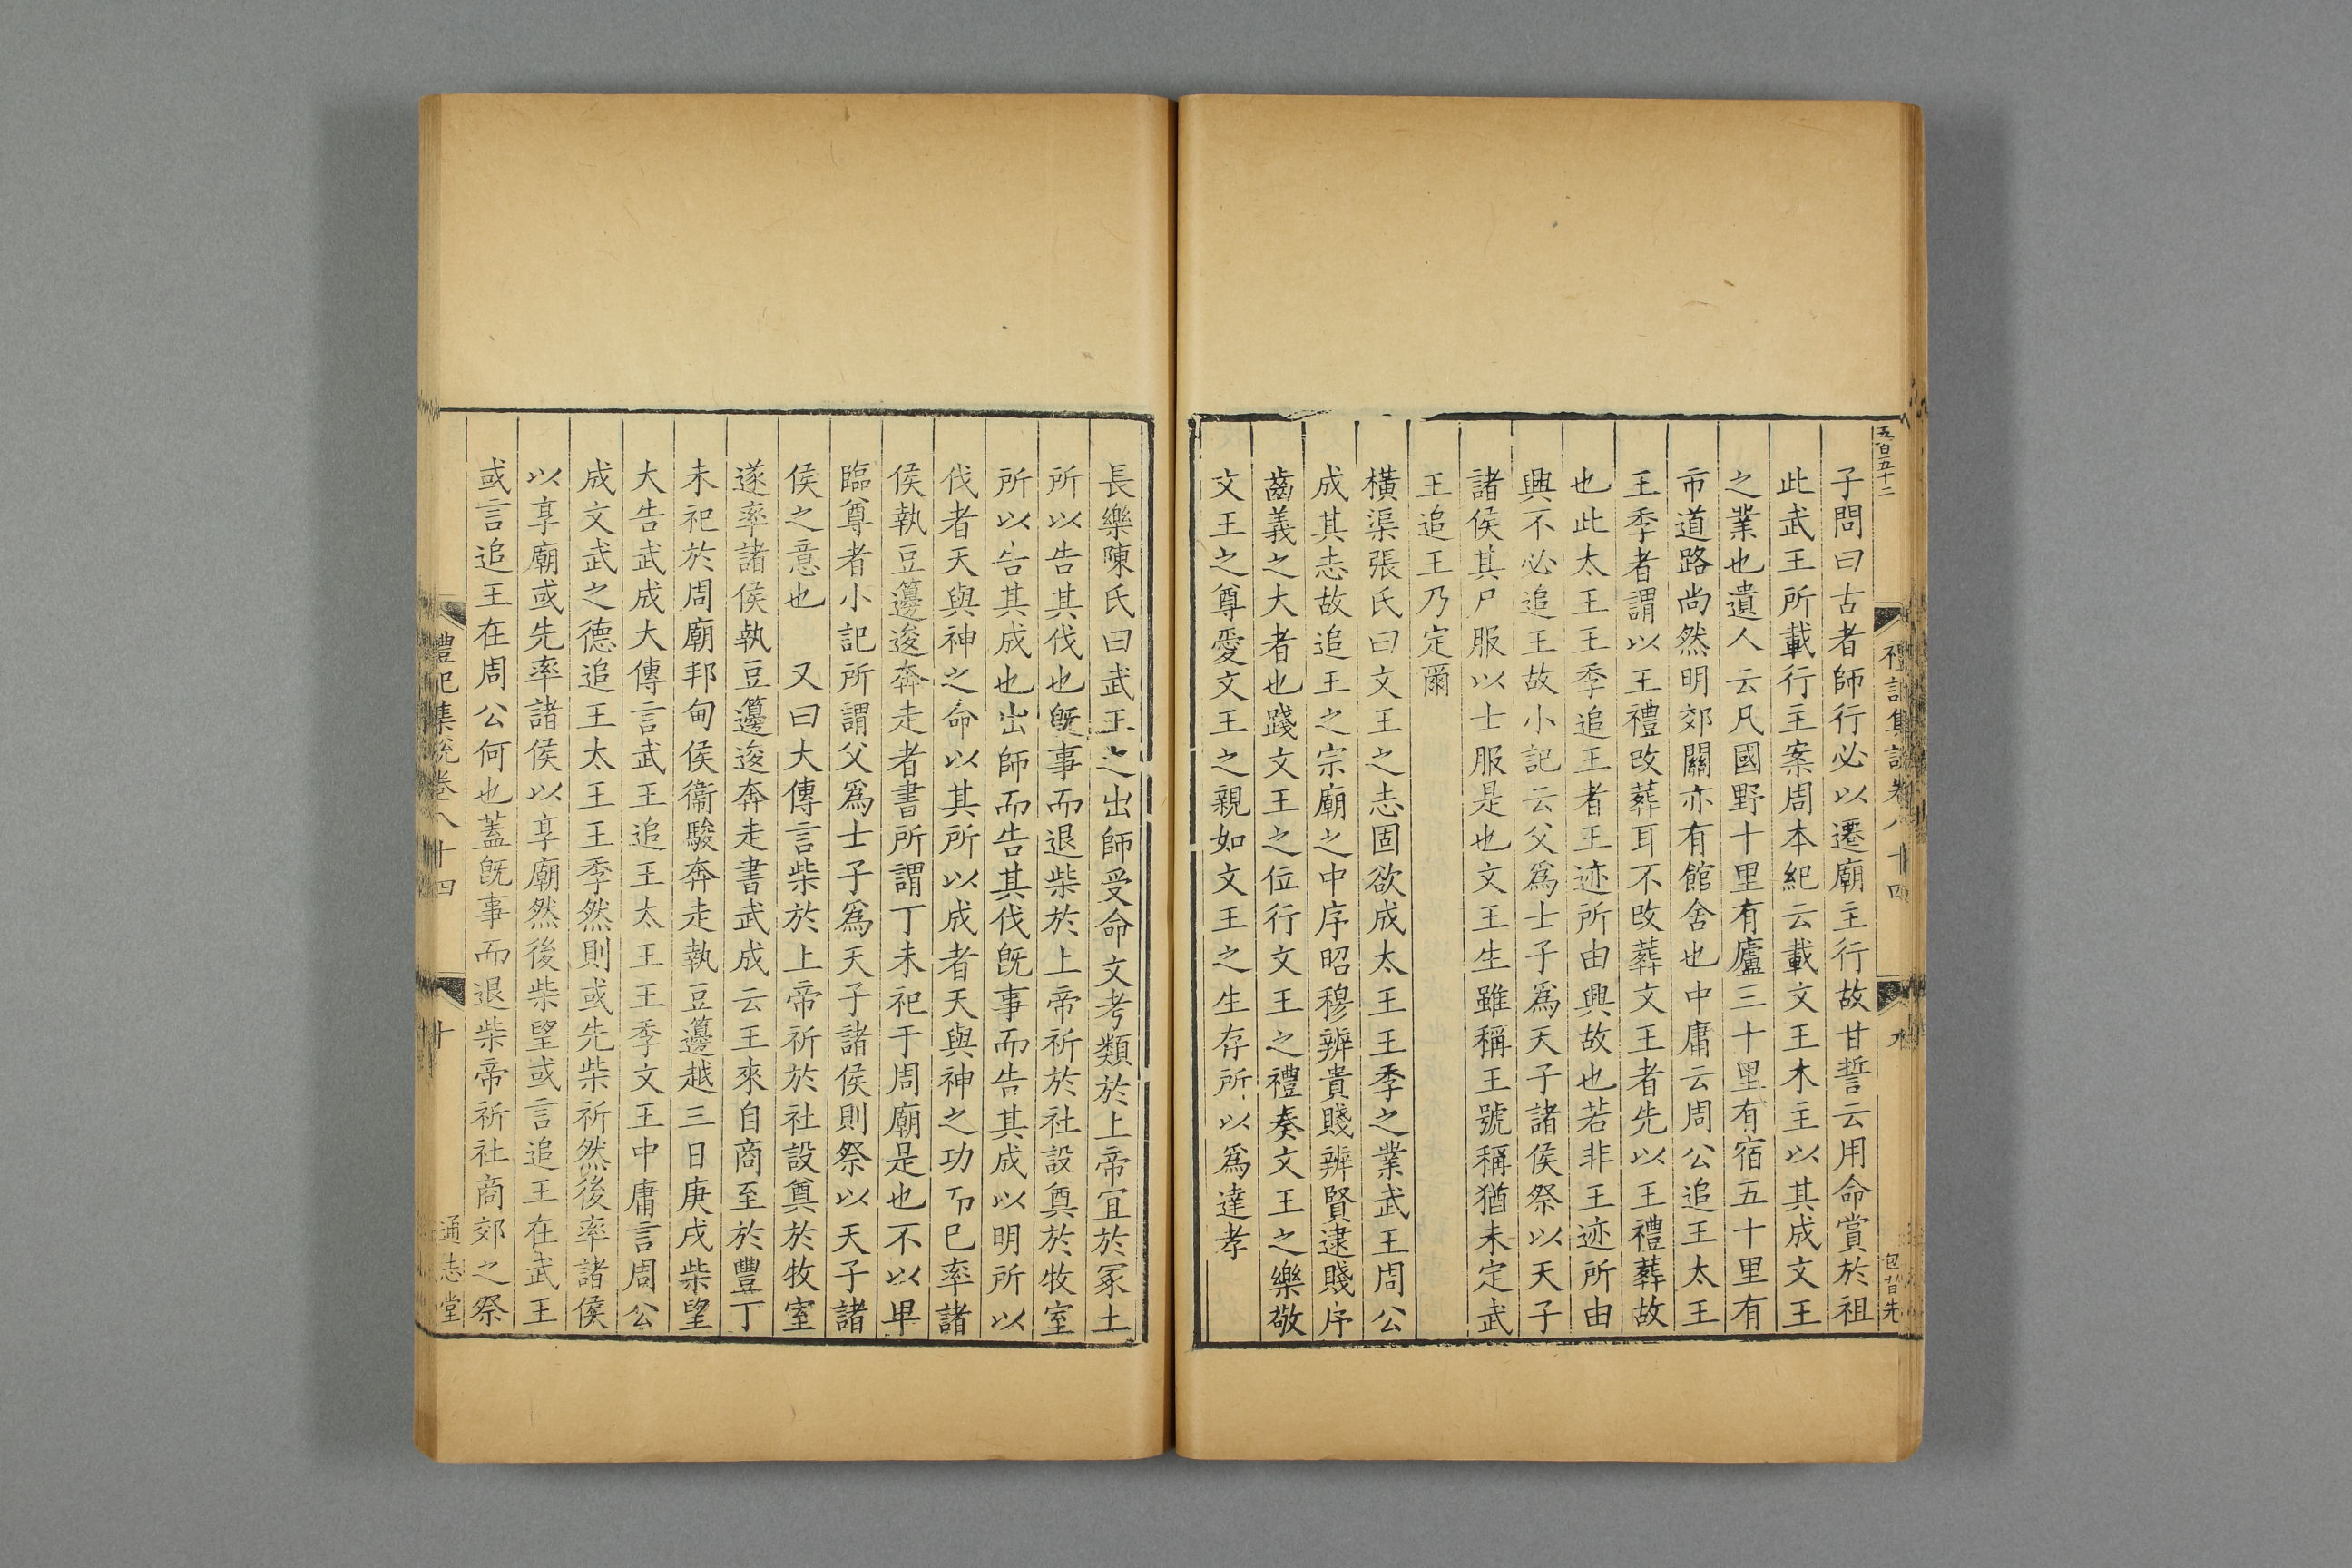 五百五十二
禮記集說卷八十四
九
包旹先
子問曰古者師行必以遷廟主行故甘誓云用命賞於祖
此武王所載行主案周本紀云載文王木主以其成文王
之業也遺人云凡國野十里有廬三十里有宿五十里有
市道路尚然明郊關亦有館舍也中庸云周公追王太王
王季者謂以王禮改葬耳不改葬文王者先以王禮葬故
也此太王王季追王者王迹所由興故也若非王迹所由
興不必追王故小記云父爲士子爲天子諸侯祭以天子
諸侯其尸服以士服是也文王生雖稱王號稱猶未定武
王追王乃定爾
橫渠張氏曰文王之志固欲成太王王季之業武王周公
成其志故追王之宗廟之中序昭穆辨貴賤辨賢逮賤序
齒義之大者也踐文王之位行文王之禮奏文王之樂敬
文王之尊愛文王之親如文王之生存所以爲達孝
長樂陳氏曰武王之出師受命文考類於上帝宜於冢土
所以告其伐也旣事而退柴於上帝祈於社設奠於牧室
所以告其成也出師而告其伐旣事而告其成以明所以
伐者天與神之命以其所以成者天與神之功而已率諸
侯執豆籩逡奔走者書所謂丁未祀于周廟是也不以卑
臨尊者小記所謂父爲士子爲天子諸侯則祭以天子諸
侯之意也　又曰大傳言柴於上帝祈於社設奠於牧室
遂率諸侯執豆籩逡奔走書武成云王來自商至於豐丁
未祀於周廟邦甸侯衞駿奔走執豆籩越三日庚戌柴望
大告武成大傳言武王追王太王王季文王中庸言周公
成文武之德追王太王王季然則或先柴祈然後率諸侯
以享廟或先率諸侯以享廟然後柴望或言追王在武王
或言追王在周公何也蓋旣事而退柴帝祈社商郊之祭
禮記集說卷八十四
十
通志堂